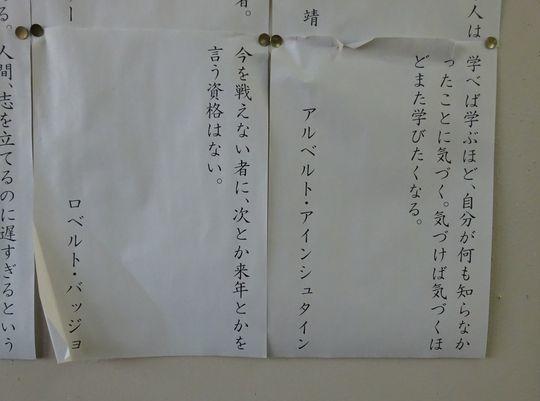 人は
靖
学べば学ぶほど、自分が何も知らなか
ったことに気づく。気づけば気づくほ
どまた学びたくなる。
アルベルト・アインシュタイン
者。
ー
今を戦えない者に、次とか来年とかを
言う資格はない。
ロベルト・バッジョ
る。人間、志を立てるのに遅すぎるという